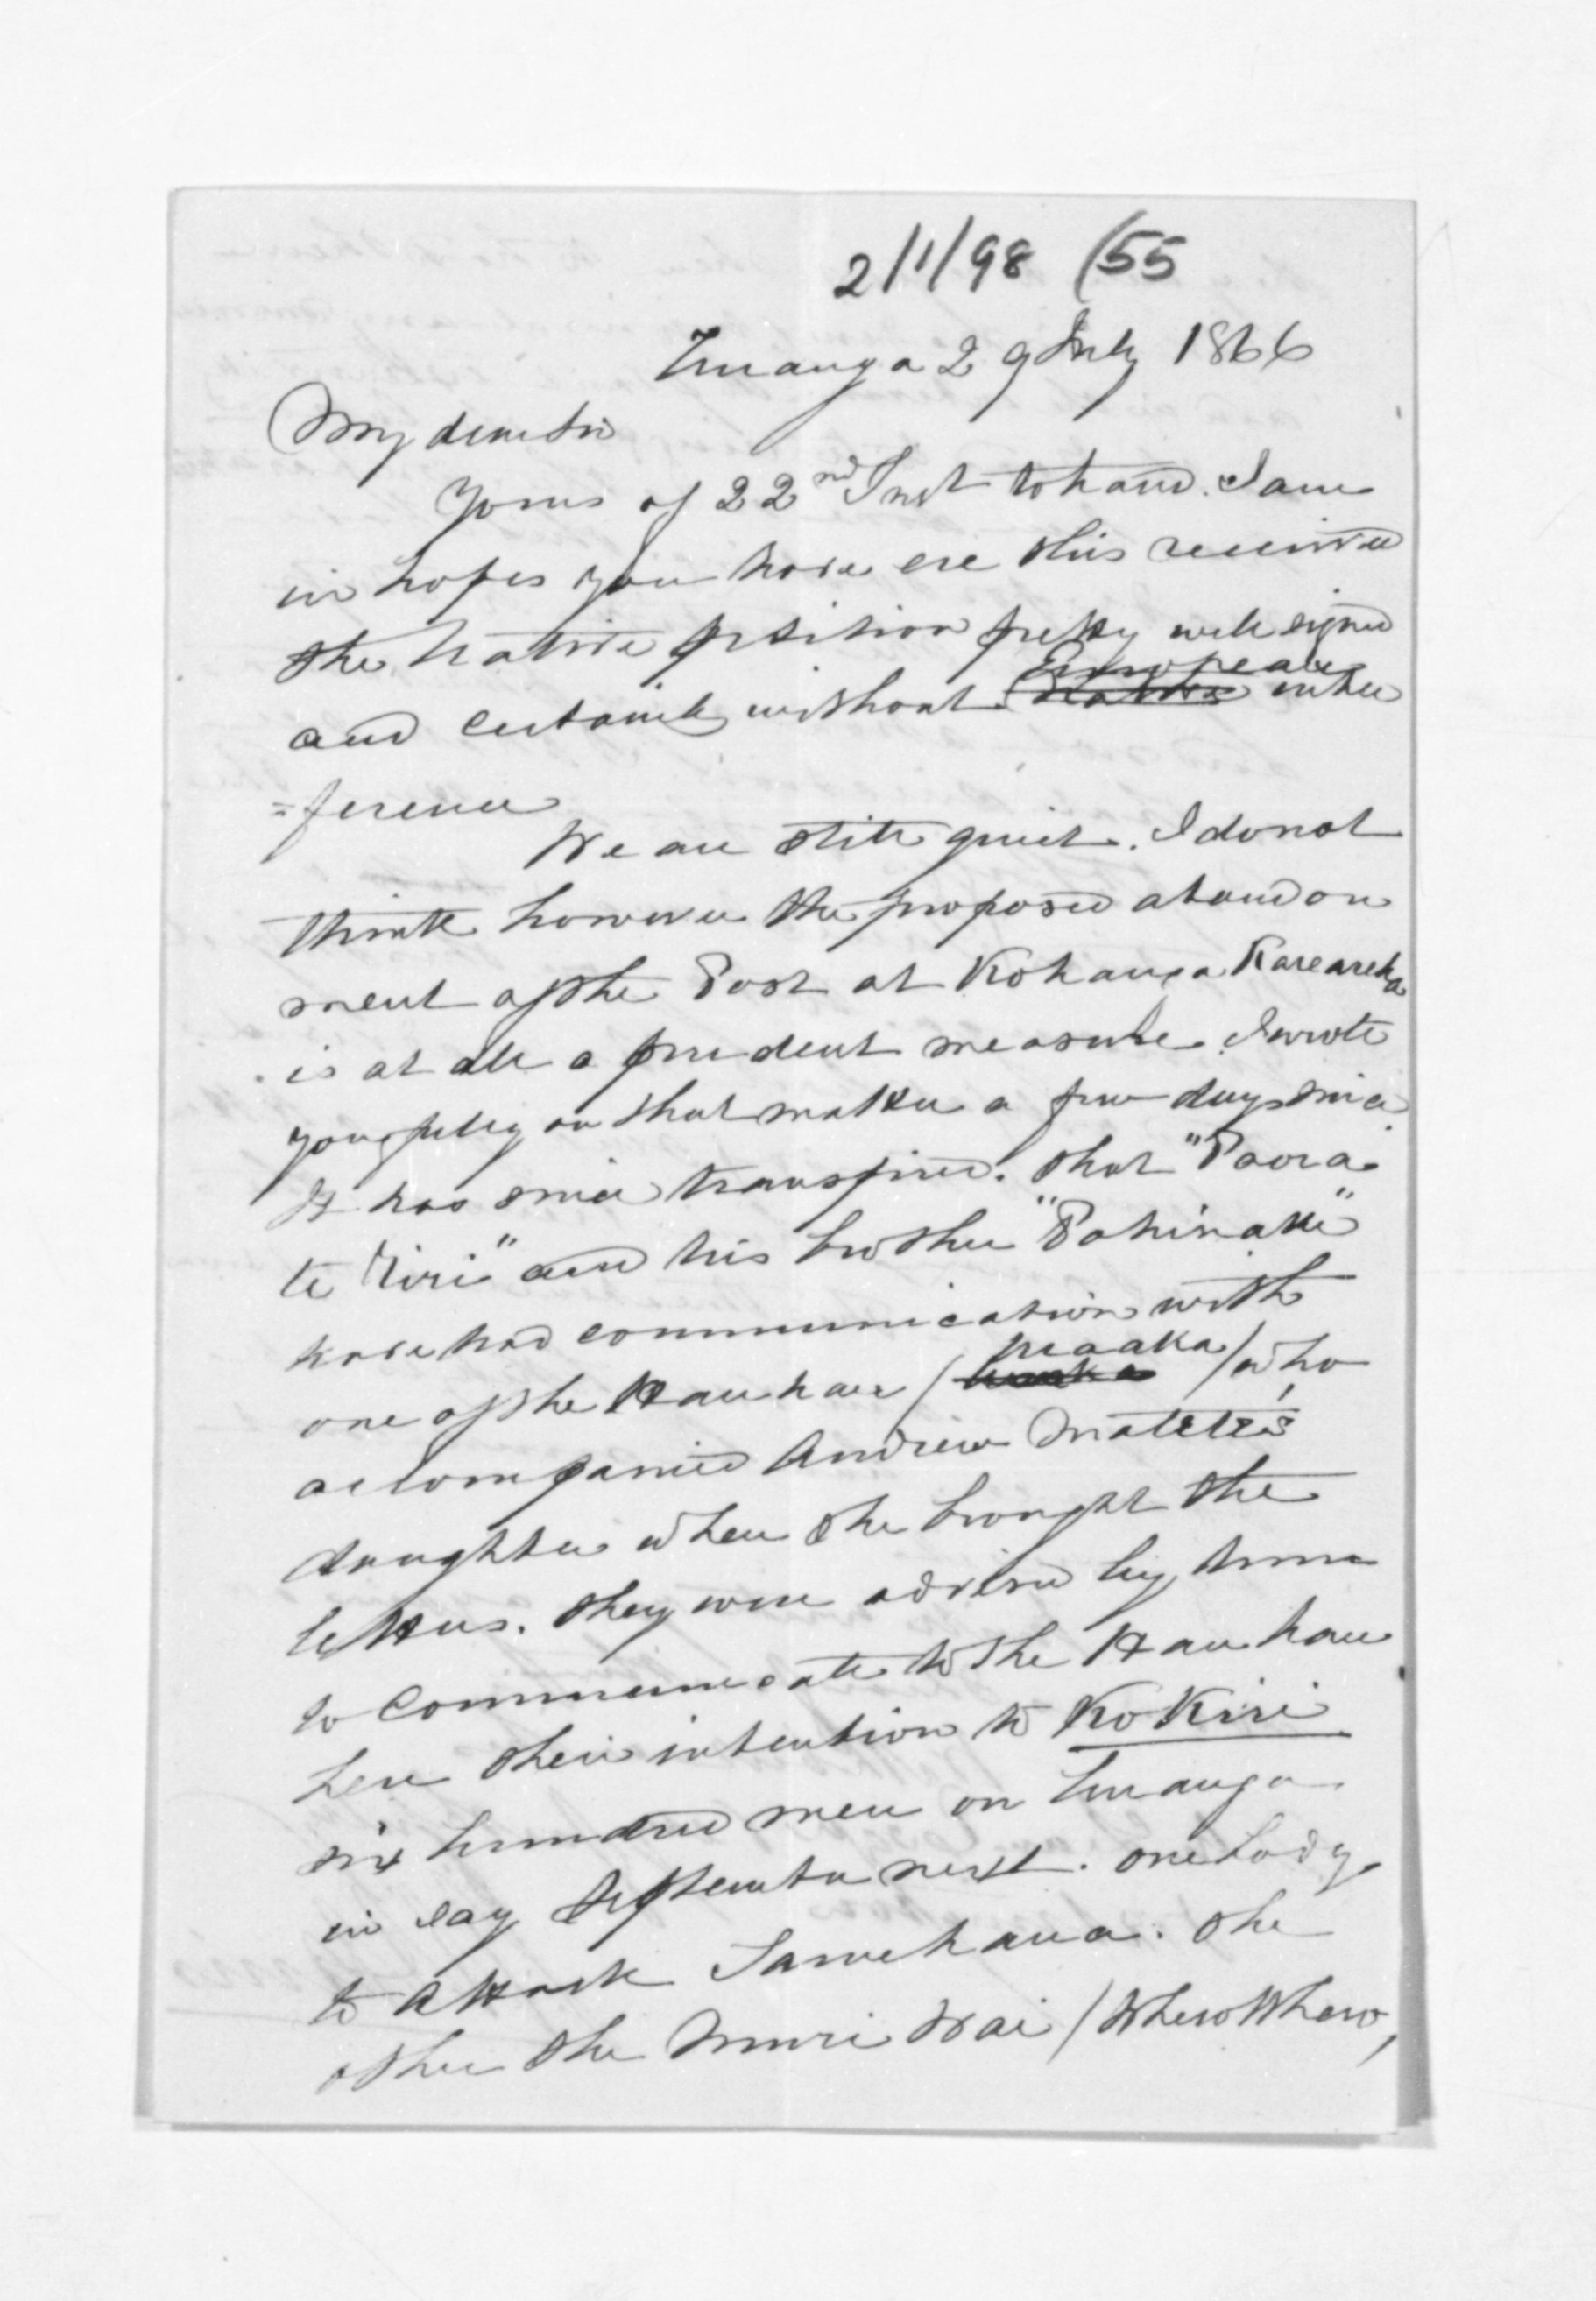 2/1/98 (55
Turanga 29 July 1866
My dear Sir
Yours of 22nd Inst to hand. I am
in hopes you have ere this received
the Native petition pretty well signed
and certainly without Native European inter
=ference
We are still quiet. I do not
think however the proposed abandon
ment of the Post at Kohanga Karearea
is at all a prudent measure. I wrote
you fully on that matter a few days since
It has since transpired. that "Paora
te Kiri" and his brother "Pahirake"
have had communication with
one of the Hauhau / maaka / who
accompanied Andrew Matete's
daughter when she brought the
letters. They were advised by him
to communicate to the Hauhau
here their intention to KoKiri
six hundred men on Turanga
in say September next. one body
to attack Tamehana. the
other the Muri Wai / WheroWhero,